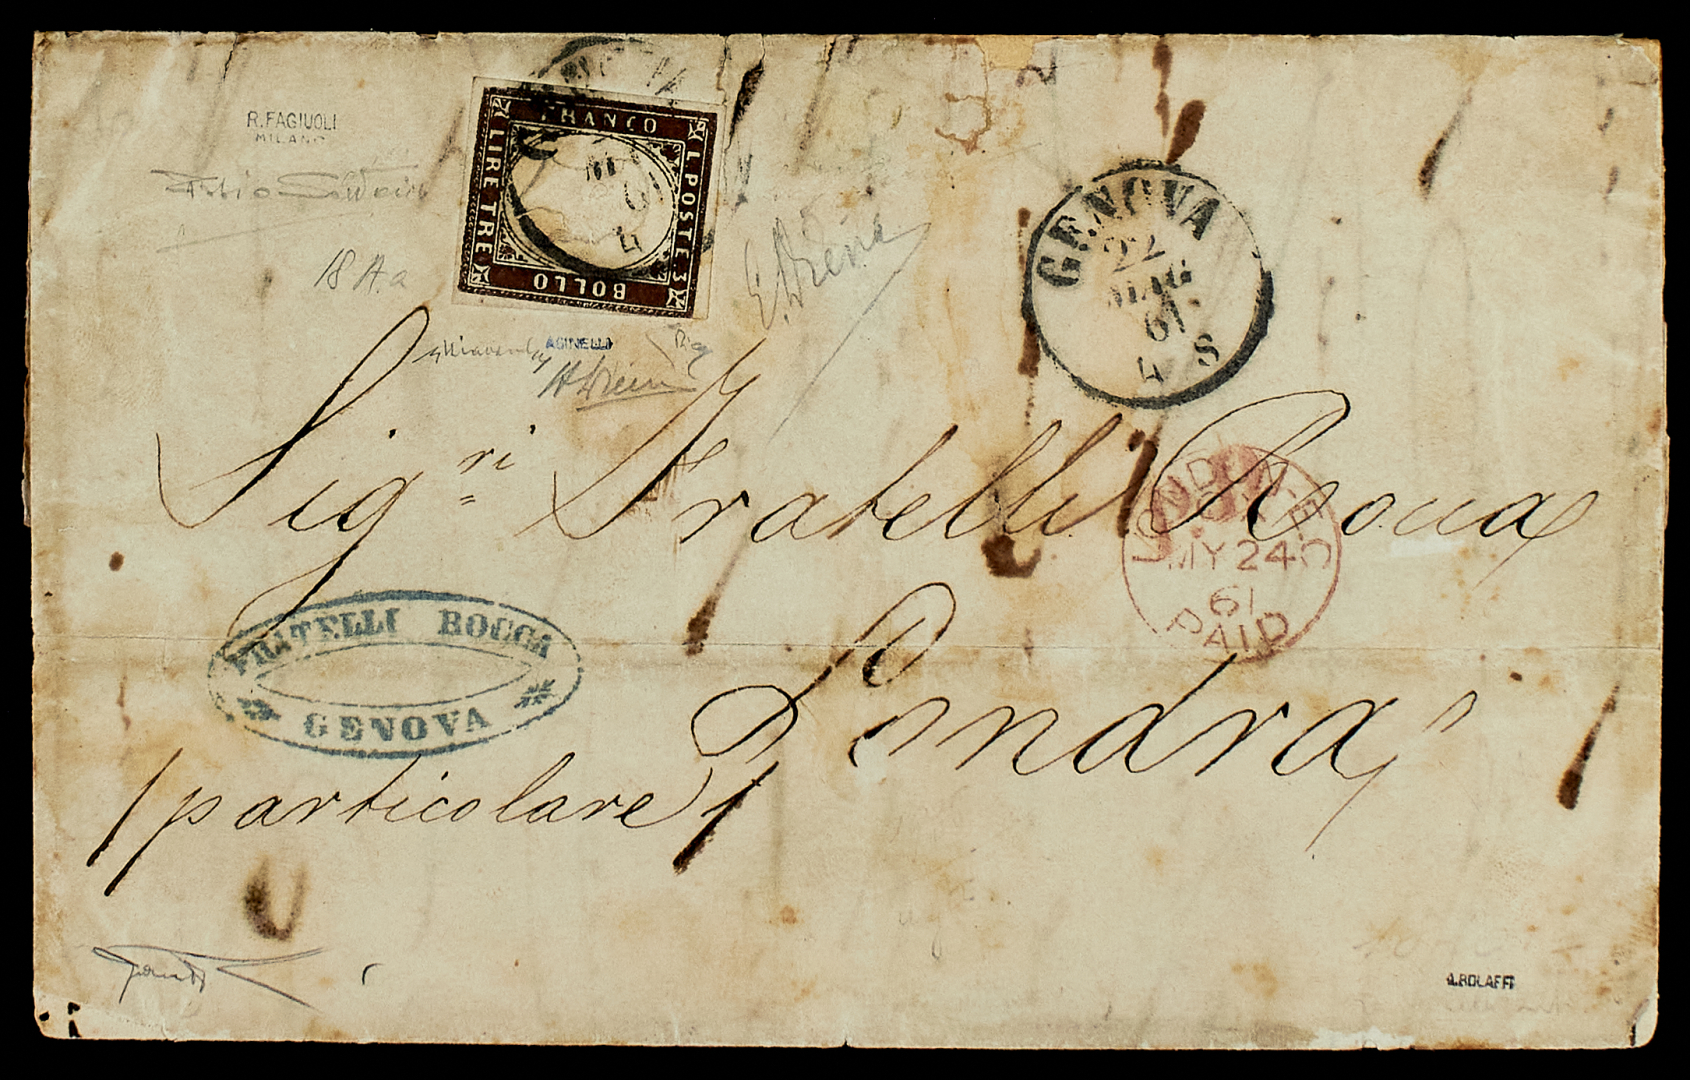 R.FAGIUOLI
MILANO
FRANCO
C. POSTE 3
BOLLO
LIRE TRE
18 A.a
E. Diena
AGINELLI
A Diena
GENOVA
22
MAG
61
4 S
Sig.ri Fratelli Rocca
LONDON
MY 24
61
PAID
FRATELLI ROCCA
GENOVA
Londra
(particolare)
A.BOLAFFI